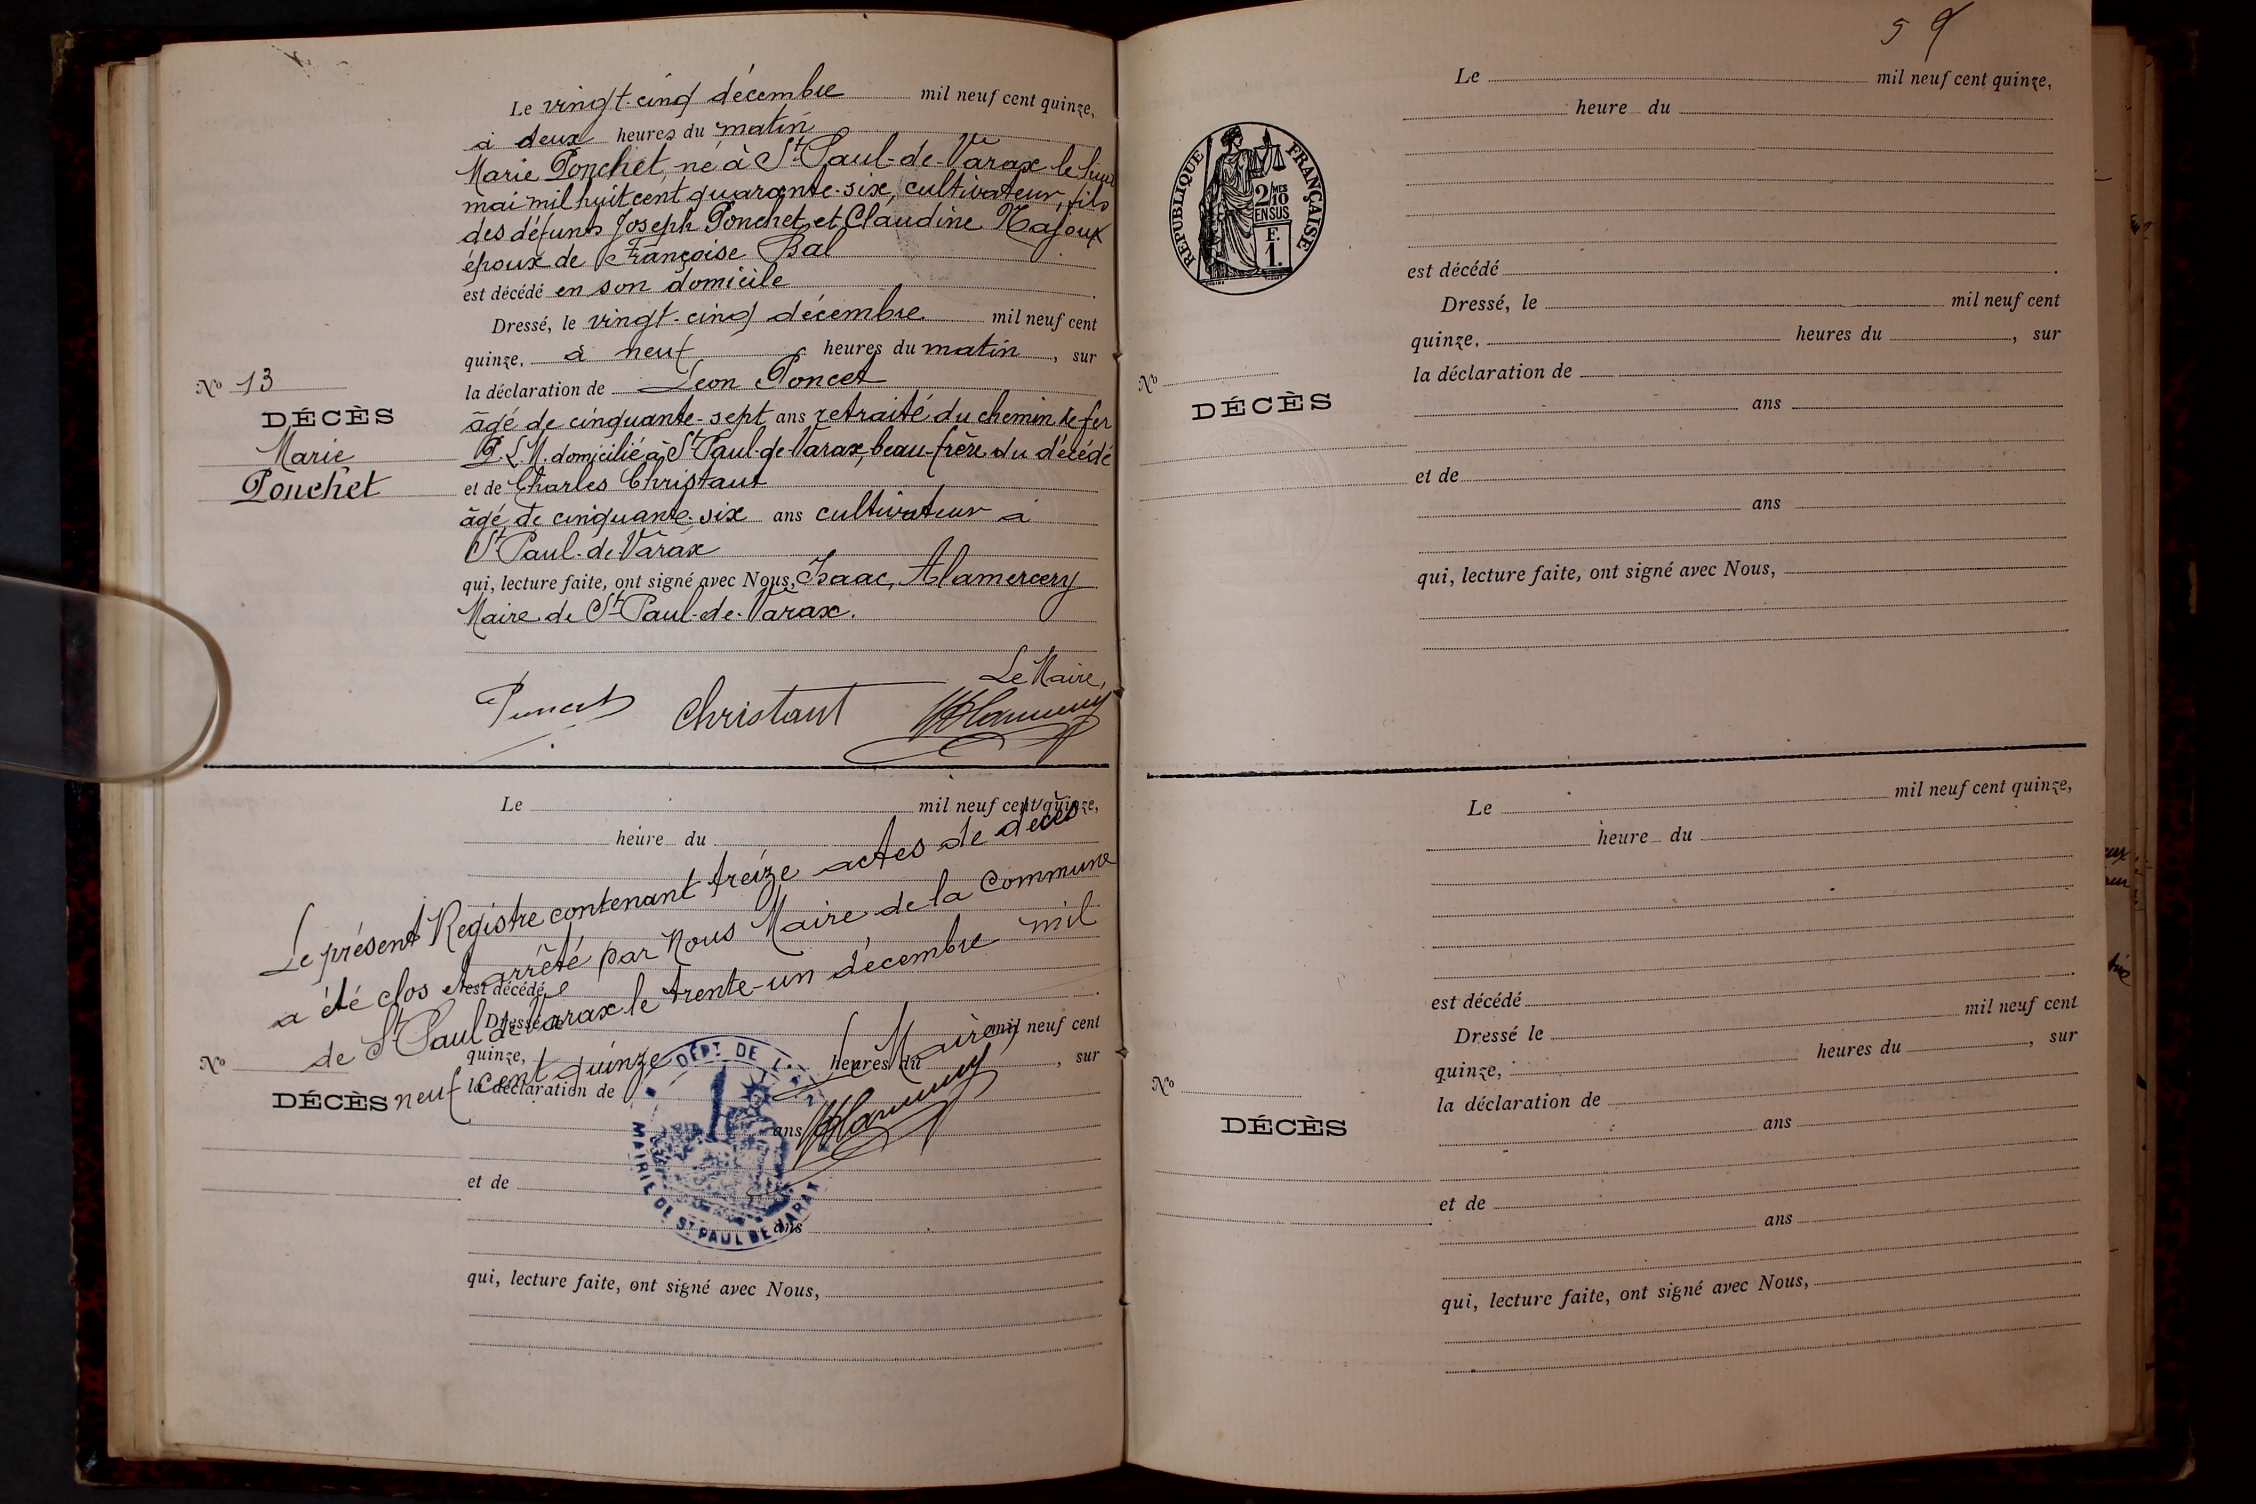 Le vingt-cinq décembre mil neuf cent quinze,
à deux heures du matin
Marie Ponchet, né à St Paul-de-Varax le huit
mai mil huit cent quarante-six, cultivateur, fils
des défunts Joseph Ponchet et Claudine Majoux
époux de Françoise Bal
est décédé en son domicile
Dressé, le vingt-cinq décembre mil neuf cent
quinze, à neuf heures du matin, sur
No 13
la déclaration de Léon Poncet
DÉCÈS
Marie
Ponchet
âgé de cinquante-sept ans retraité du chemin de fer
P.L.M. domicilié à St Paul-de-Varax, beau-frère du décédé
et de Charles Christaut
âgé de cinquante-six ans cultivateur à
St Paul-de-Varax
qui, lecture faite, ont signé avec Nous, Isaac, Alamercery
Maire de St Paul-de-Varax.
Le Maire,
Poncet Christaut
Le mil neuf cent quinze,
heure du
Le présent Registre contenant treize actes de décès
a été clos et arrêté par Nous Maire de la Commune
de St Paul de Varax le trente-un décembre mil
neuf cent quinze
Le Maire,
est décédé
Dressé, le mil neuf cent
quinze, heures du , sur
No
la déclaration de
DÉCÈS
ans
et de
ans
qui, lecture faite, ont signé avec Nous,
DÉPT DE L'AIN
MAIRIE DE ST PAUL DE VARAX
59
Le mil neuf cent quinze,
heure du
RÉPUBLIQUE FRANÇAISE
2/10 MES
EN SUS
F.
1.
est décédé
Dressé, le mil neuf cent
quinze, heures du , sur
No
la déclaration de
DÉCÈS
ans
et de
ans
qui, lecture faite, ont signé avec Nous,
Le mil neuf cent quinze,
heure du
est décédé
Dressé le mil neuf cent
quinze, heures du , sur
No
la déclaration de
DÉCÈS
ans
et de
ans
qui, lecture faite, ont signé avec Nous,